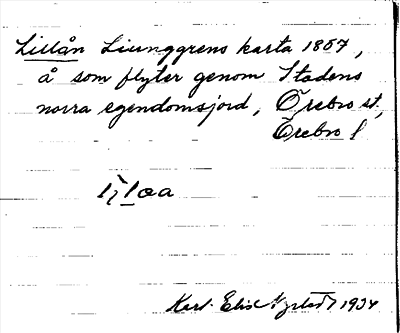 Lillån Ljunggrens karta 1857,
å som flyter genom Stadens
norra egendomsjord, Örebro st,
Örebro l
Karl-Elis 1934